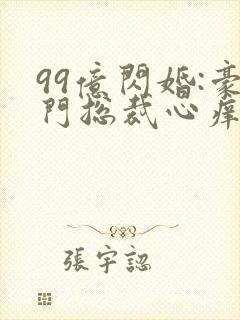 99億閃婚:豪
門總裁心痒
張宇認